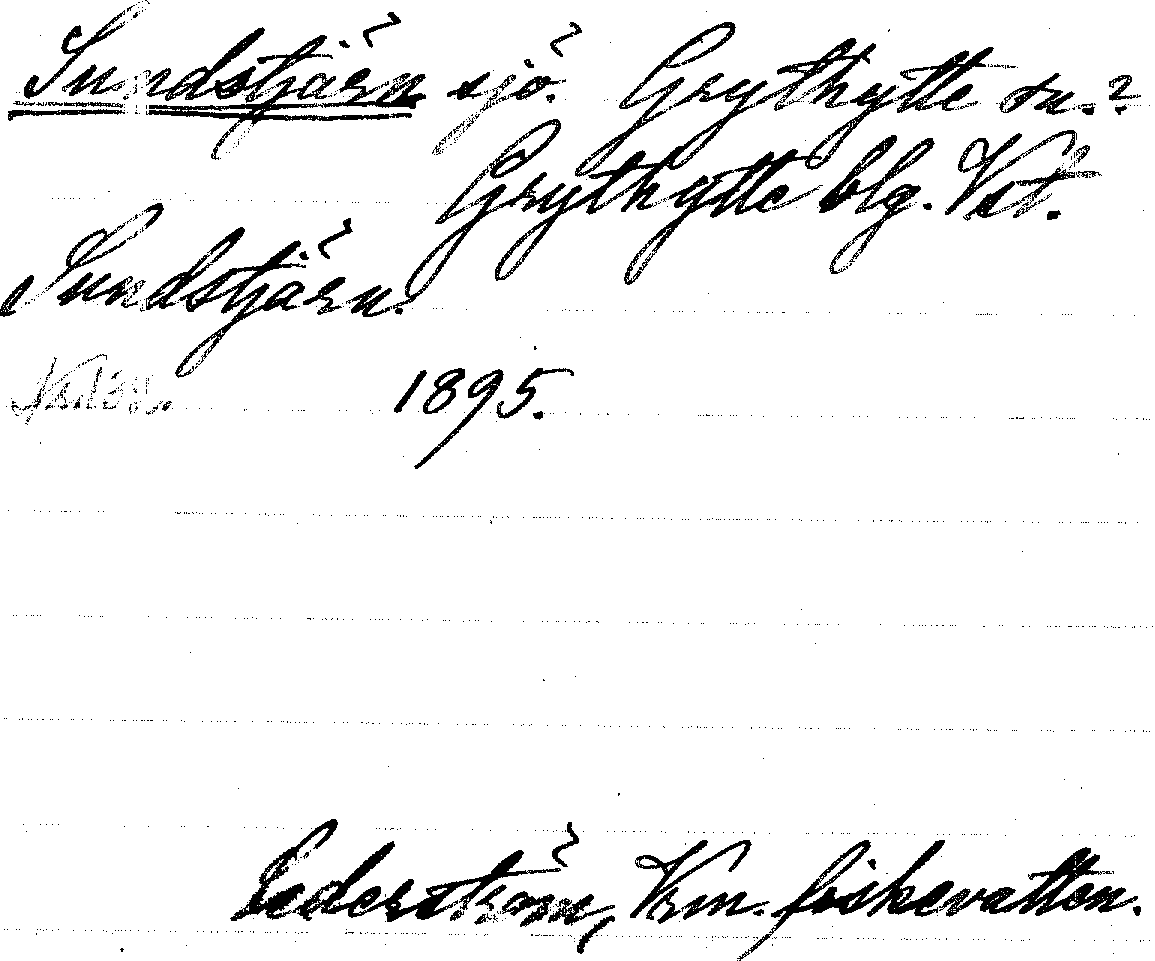 Sundstjärn sjö. Grythytte sn.?
Grythytte blg. Vst.
Sundstjärn.
1895.
Cederström, Vrm. fiskevatten.